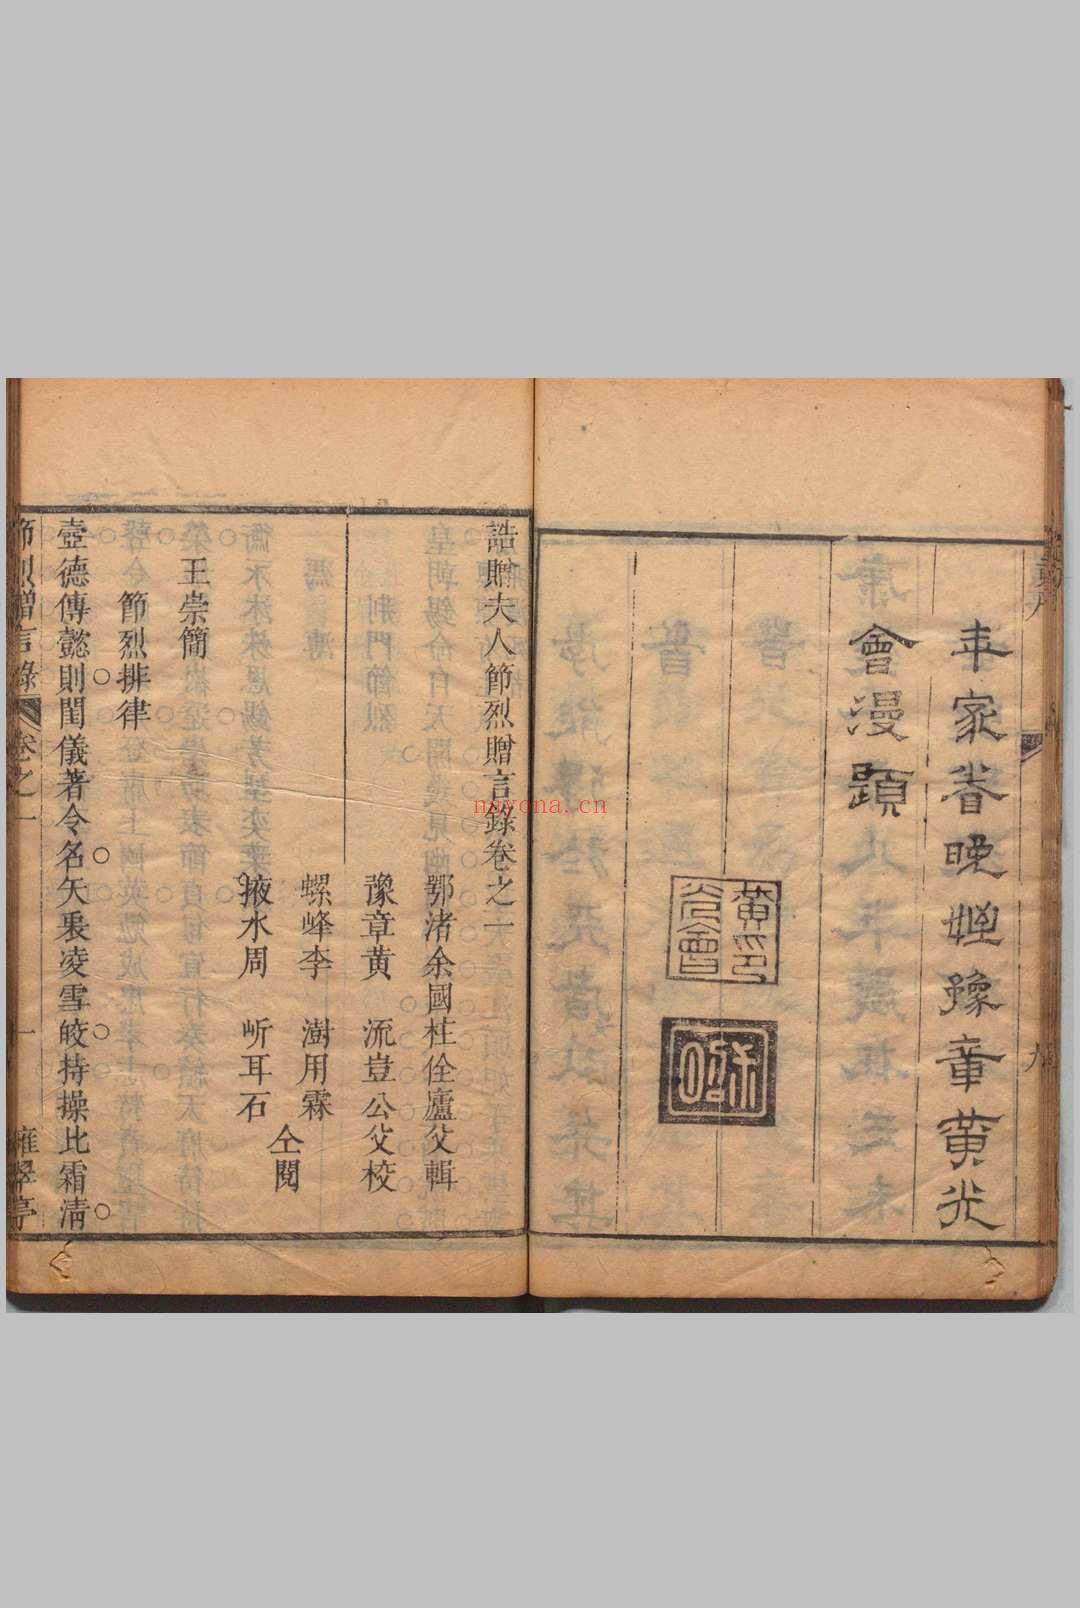 年家眷晚姪豫章黃光
會漫題
黃光會印
誥贈夫人節烈贈言錄卷之一
鄂渚余國柱佺廬父輯
豫章黃　流豈公父校
螺峰李　澍用霖
仝閱
掖水周　昕耳石
王崇簡
節烈排律
壼德傳懿則閨儀著令名矢裘凌雪皎持操比霜清
節烈贈言錄　卷之一　一　雍翠亭
九
nayona.cn